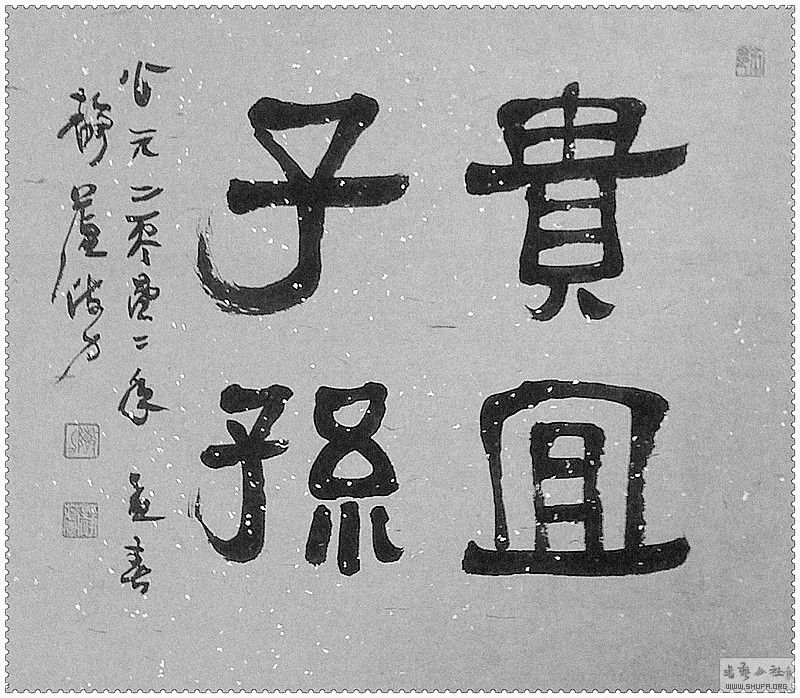 貴宜
子孫
公元二零零二年孟春
靜廬
书艺公社
WWW.SHUFA.ORG